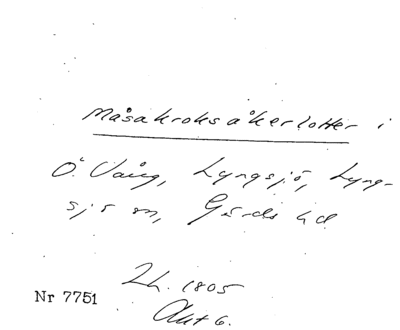 Måsakroksåkerlotter i
Ö. Vång, Lyngsjö, Lyng-
sjö sn, Gärds hd
Lh. 1805
Nr 7751
Akt 6.